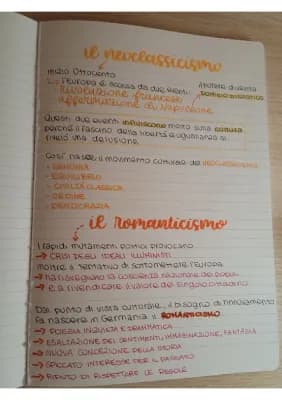 il neoclassicismo
inizio Ottocento
L'Europa è scossa da due eventi
rivoluzione francese
affermazione di Napoleone
Questi due eventi influiscono molto sulla cultura
perché il fascino della libertà e uguaglianza si
rivelò una delusione.
Così nasce il movimento culturale del NEOCLASSICISMO
- ARMONIA
- EQUILIBRIO
- CIVILTÀ CLASSICA
- ORDINE
- DEMOCRAZIA
il romanticismo
I rapidi mutamenti politici provocano
→ CRISI DEGLI IDEALI ILLUMINISTI
Inoltre il tentativo di sottomettere l'Europa
→ fa risvegliare la coscienza nazionale dei popoli
→ e a rivendicare il valore del singolo cittadino
Dal punto di vista culturale, il bisogno di rinnovamento
fa nascere in Germania il ROMANTICISMO
→ POESIA INQUIETA E DRAMMATICA
→ ESALTAZIONE DEI SENTIMENTI IMMAGINAZIONE, FANTASIA
→ NUOVA CONCEZIONE DELLA STORIA
→ SPICCATO INTERESSE PER IL PASSATO
→ RIFIUTO DI RISPETTARE LE REGOLE